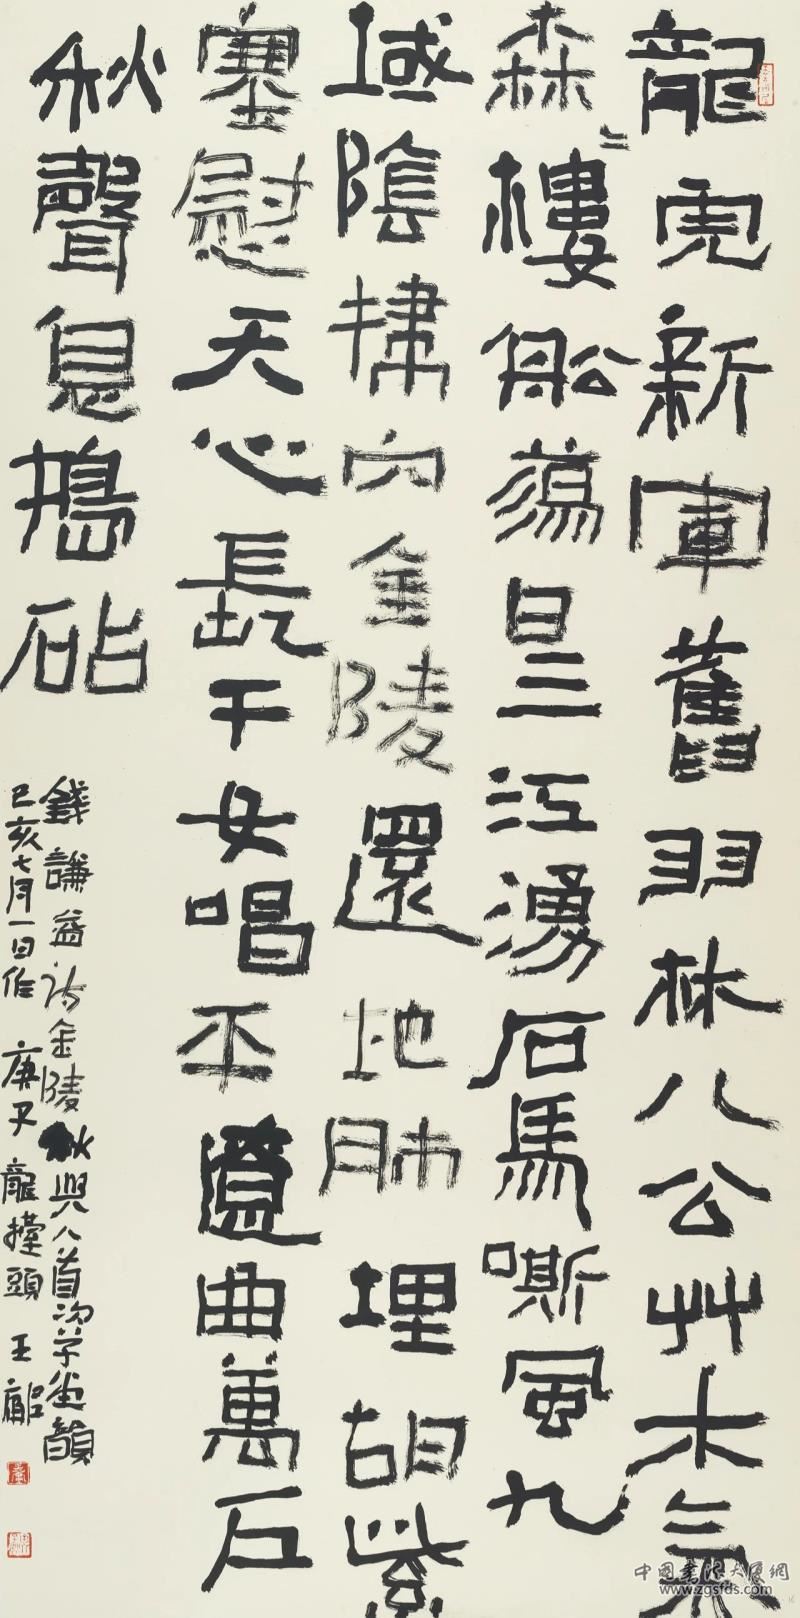 龍虎新軍舊羽林八公艸木氣
森〻樓船蕩日三江湧石馬嘶風九
域陰掃穴金陵還地肺埋胡紫
塞慰天心長干女唱平遼曲萬戶
秋聲息搗砧
錢謙益詩金陵秋興八首次草堂韻
己亥七月一日作 庚子龍擡頭 王
中國書法大展網
www.zgsfds.com